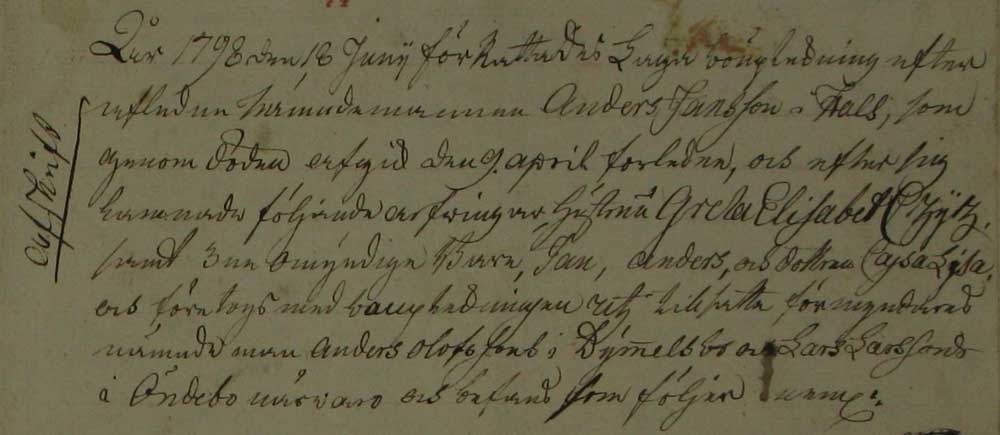 Afskrift
År 1798 den 18 Junÿ förrättades Laga bouptedning efter
afledne Nämndemannen Anders Jansson i Fall, som
genom döden afgick den 9. april förleden, och efter sig
lämnade följande arfvingar, Hustrun Greta Elisabet
samt 3ne Omyndige Barn, Jan, Anders, och dottren Cajsa Lisa,
och företogs med bouptedningen uti tillsatte förmyndares
nämndeman Anders Olofssons i Dÿmelsbo och Lars Larssons
i Öndebo närvaro och befans som följer nemp: